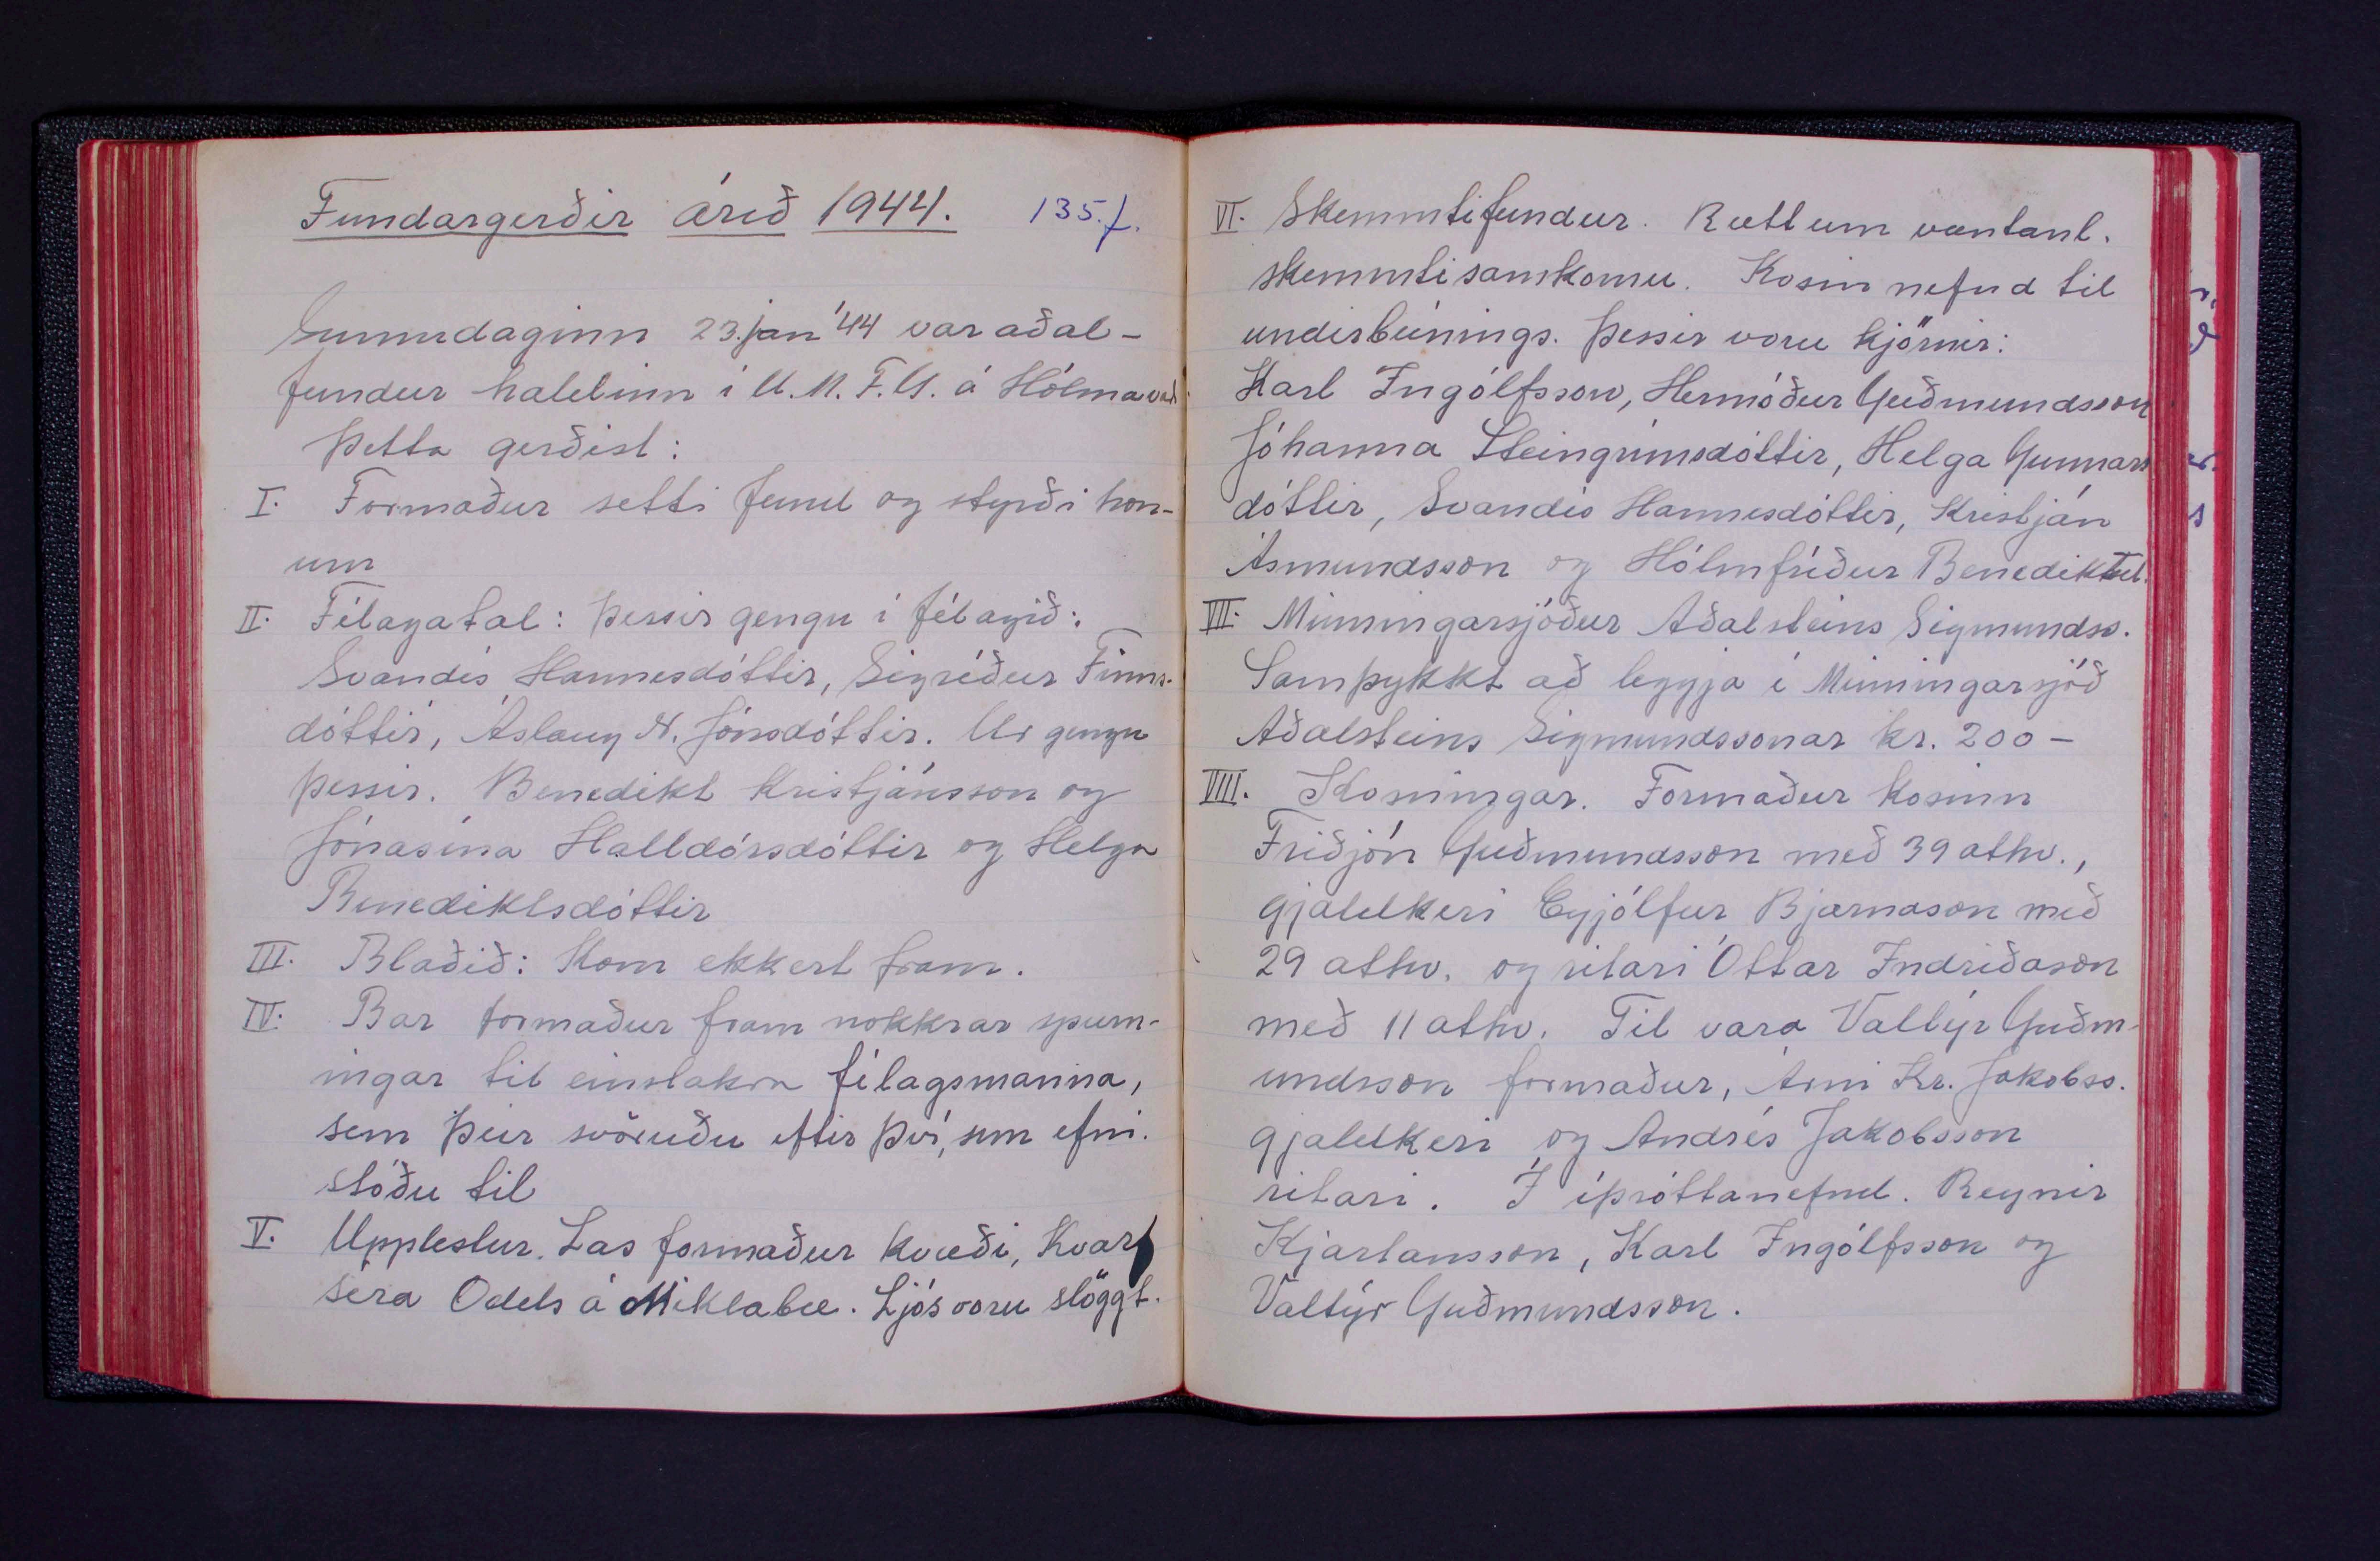 Fundargerðir árið 1944. 135.f.
Sunnudaginn 23. jan '44 var aðal-
fundur haldinn í U.M.F.G. á Hólmavað
Þetta gerðist:
I. Formaður setti fund og styrði hon-
um
II. Félagatal: Þessir gengu í félagið:
Svandís Hannesdóttir, Sigríður Finns-
dóttir, Áslaug N. Jónsdóttir. Úr gengu
þessir. Benedikt Kristjánsson og
Jónasína Halldórsdóttir og Helga
Benediktsdóttir
III. Blaðið: Kom ekkert fram.
IV. Bar formaður fram nokkrar spurn-
ingar til einstakra félagsmanna,
sem þeir svöruðu eftir því, sem efni
stóðu til
V. Upplestur. Las formaður kvæði, Hvarf
séra Odds á Miklabæ. Ljós voru slöggt.
VI. Skemmtifundur. Rætt um væntanl.
skemmtisamkomu. Kosin nefnd til
undirbúnings. Þessir voru kjörnir:
Karl Ingólfsson, Hermóður Guðmundsson
Jóhanna Steingrímsdóttir, Helga Gunnars
dóttir, Svandís Hannesdóttir, Kristján
Ásmundsson og Hólmfríður Benediktsd.
VII. Minningarsjóður Aðalsteins Sigmundss.
Samþykkt að leggja í Minningarsjóð
Aðalsteins Sigmundssonar kr. 200-
VIII. Kosningar. Formaður kosinn
Friðjón Guðmundsson með 39 atkv.,
gjaldkeri Eyjólfur Bjarnason með
29 atkv. og ritari Óttar Indriðason
með 11 atkv. Til vara Valtýr Guðm-
undsson formaður, Árni Kr. Jakobss.
gjaldkeri og Andrés Jakobsson
ritari. Í íþróttanefnd. Reynir
Kjartansson, Karl Ingólfsson og
Valtýr Guðmundsson.